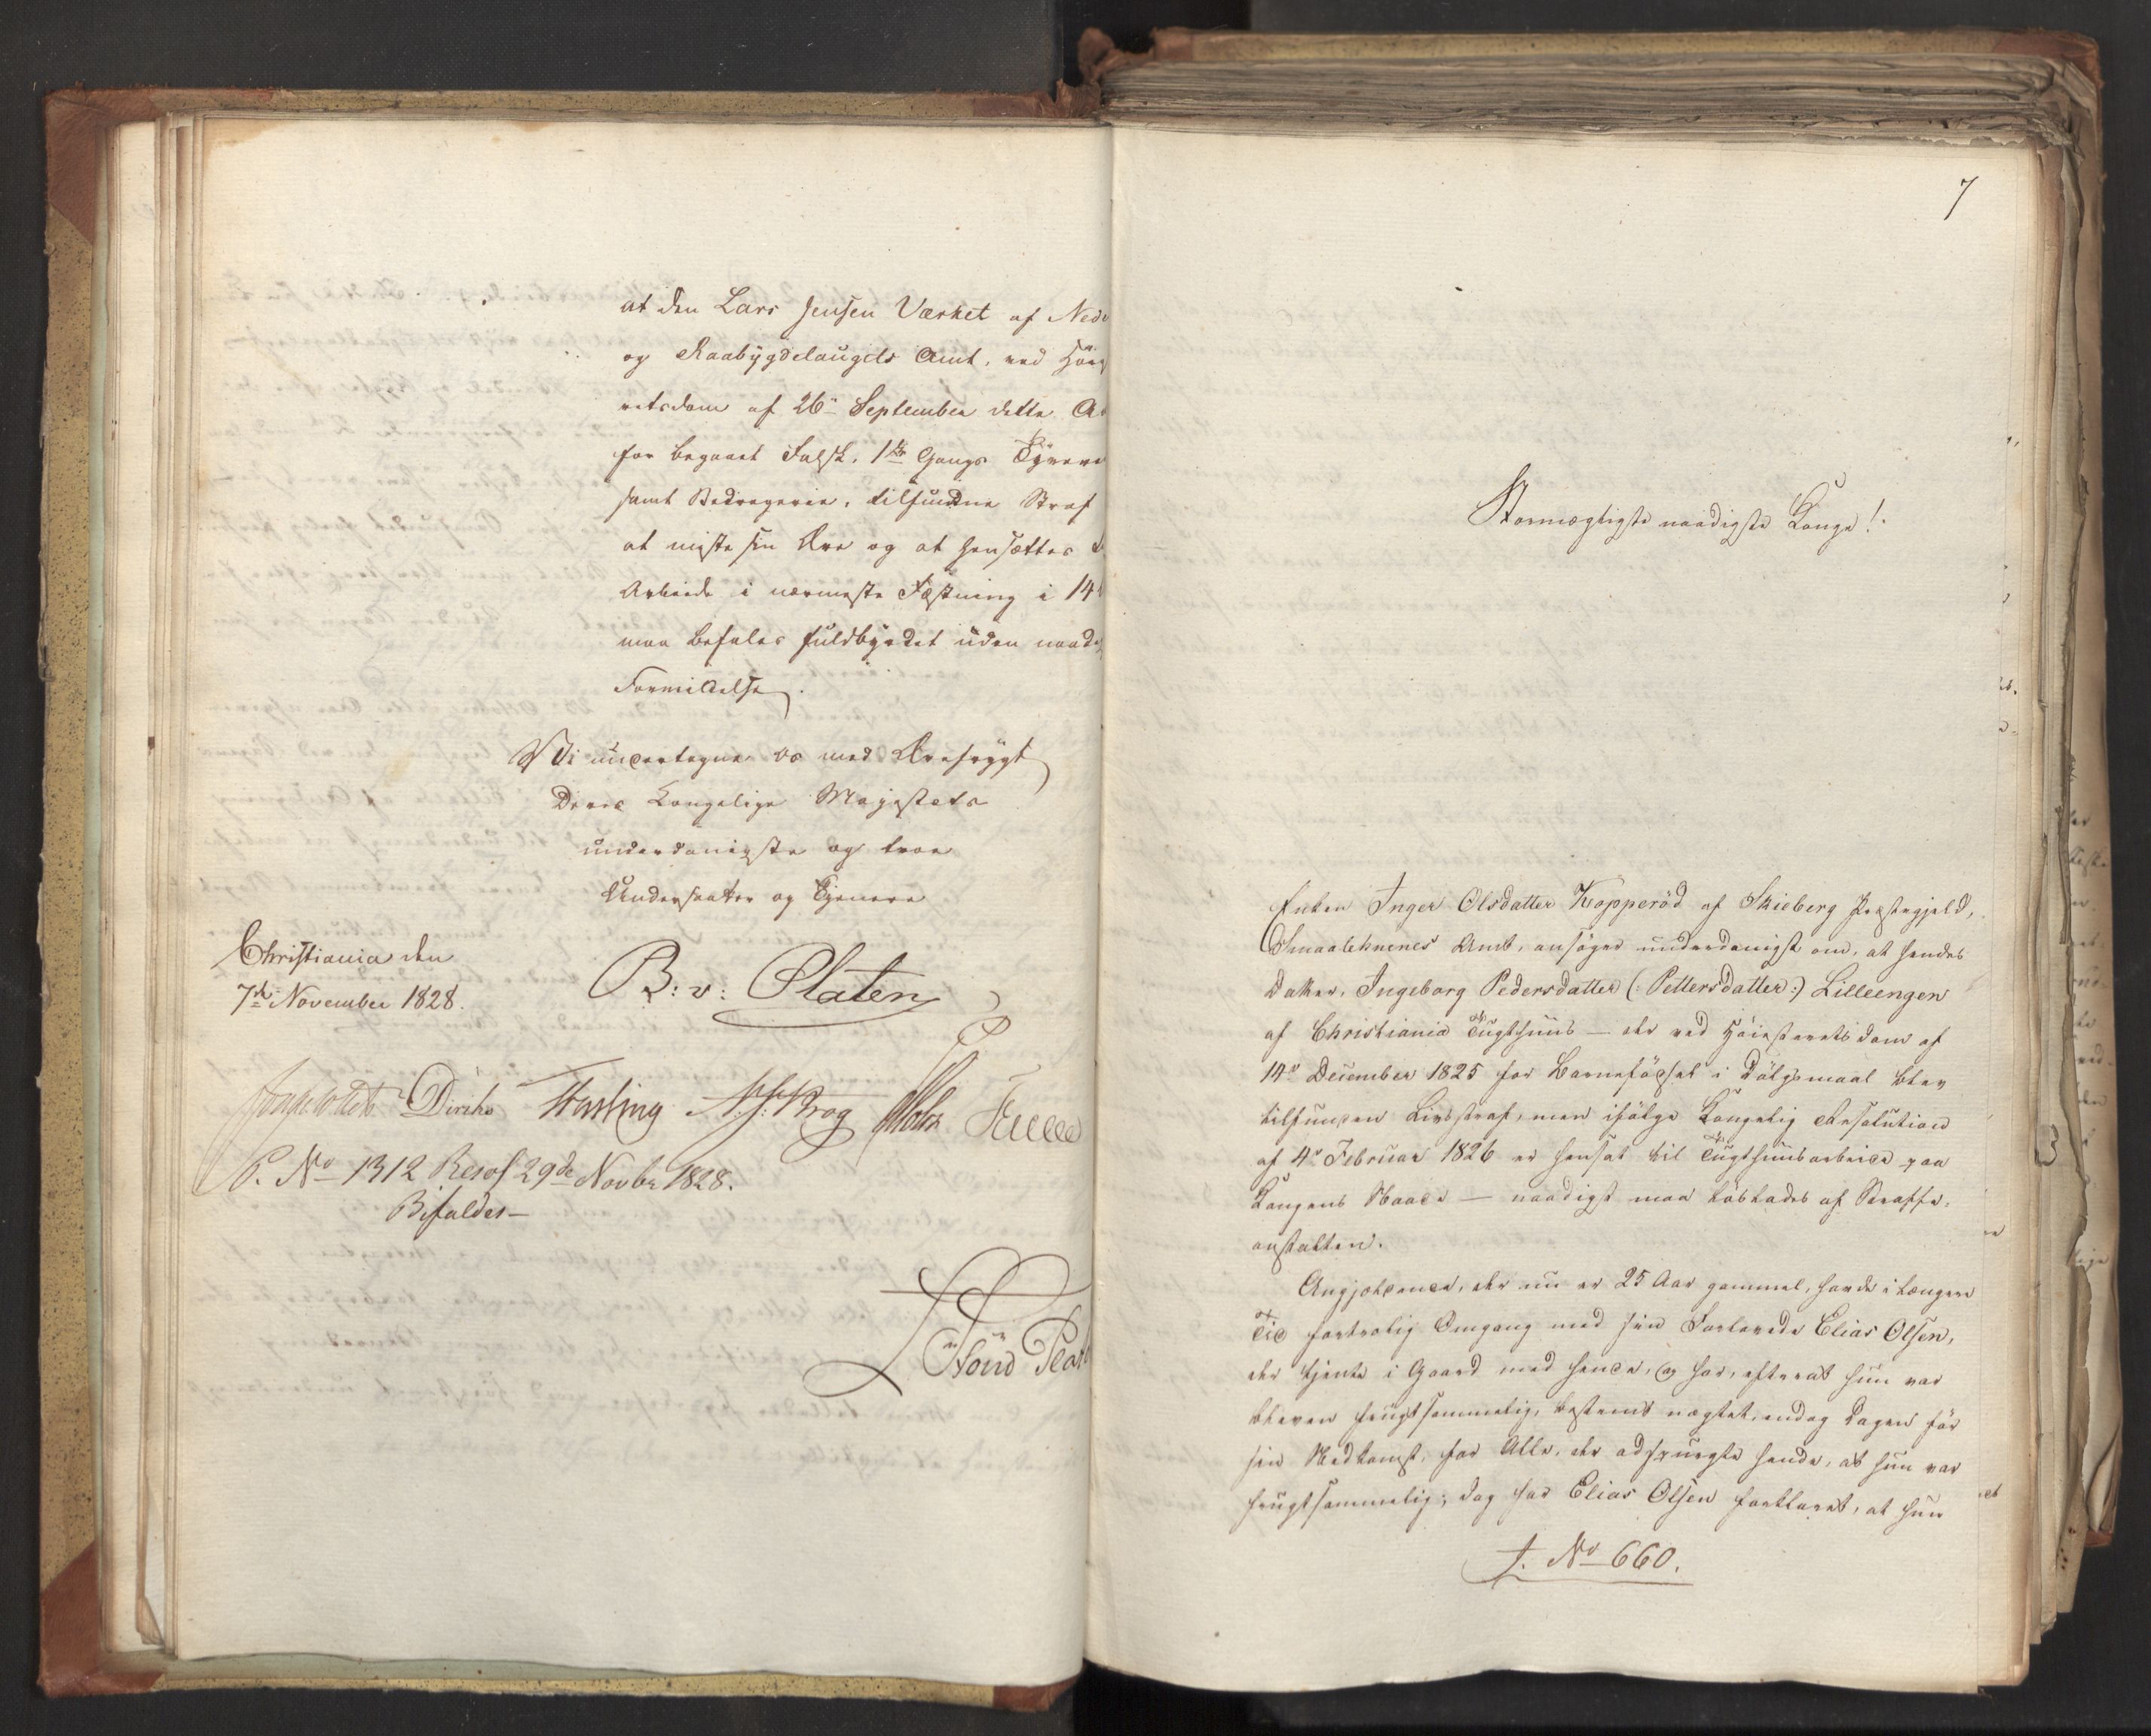 at den Lars Jensen Værket af Nede
og Raabÿgdelaugets Amt, ved Høies
retsdom af 26de September dette Aa
for begaaet Falsk, 1ste Gangs Tÿverie
samt Bedragerie, tilfundne Straf
at miste sin Ære og at hensættes t
Arbeide i nærmeste Fæstning i 14
maa befales fuldbÿrdet uden naadi
Formildelse.
Vi undertegne os med Ærefrÿgt
Deres Kongelige Majestæts
underdanigste og troe
Undersaatter og Tjenere
Christiania den
7de November 1828.
B: v: Platen
Diriks N. J. Krog
P. No 1312 Resol 29de Novbr 1828.
Bifaldes –
7
Stormægtigste naadigste Konge!
Enken Inger Olsdatter Kopperöd af Skieberg Præstegjeld,
Smaalehnenes Amt, ansöger underdanigst om, at hendes
Datter, Ingeborg Pedersdatter (: Pettersdatter :) Lilleengen
af Christiania Tugthuus – der ved Höiesteretsdom af
14de December 1825 for Barneföдsel i Dölgsmaal blev
tilfunden Livsstraf, men ifölge Kongelig Resolution
af 4de Februar 1826 er hensat til Tugthuusarbeide paa
Kongens Naade – naadigst maa löslades af Straffe-
anstalten.
Angjeldende, der nu er 25 Aar gammel, havde i længere
Tid fortrolig Omgang med sin Forlovede Elias Olsen,
der tjente i Gaard med hende, og har, efterat hun var
bleven frugtsommelig, bestemt nægtet, endog Dagen för
sin Nedkomst, for Alle, der adspurgte hende, at hun var
frugtsommelig; dog har Elias Olsen forklaret, at hun
J. No 660.